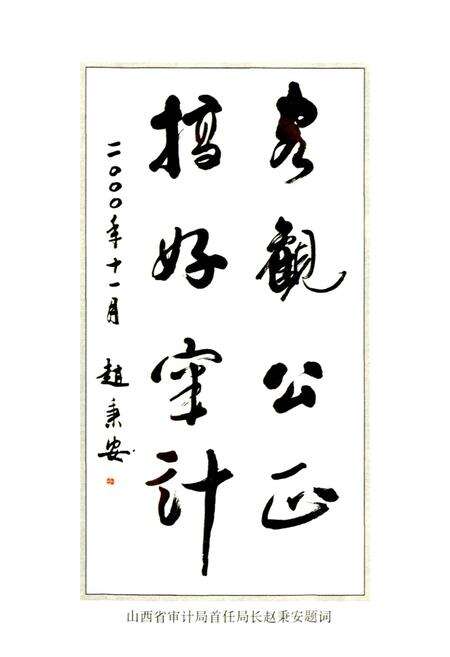 客觀公正
搞好审计
二〇〇〇年十一月
趙秉安
山西省审计局首任局长赵秉安题词